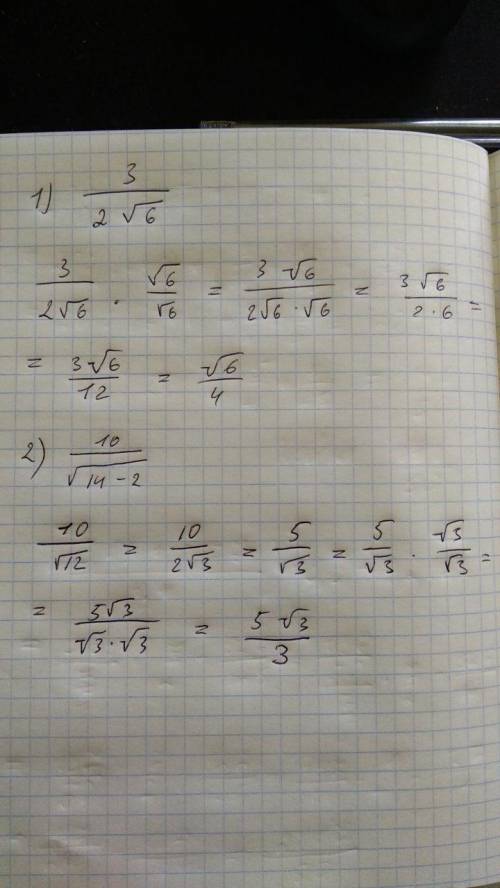 1) 3/(2√6)
3/(2√6) · √6/√6 = (3√6)/(2√6·√6) = (3√6)/(2·6) =
= (3√6)/12 = √6/4
2) 10/√(14-2)
10/√12 = 10/(2√3) = 5/√3 = 5/√3 · √3/√3 =
= (5√3)/(√3·√3) = (5√3)/3